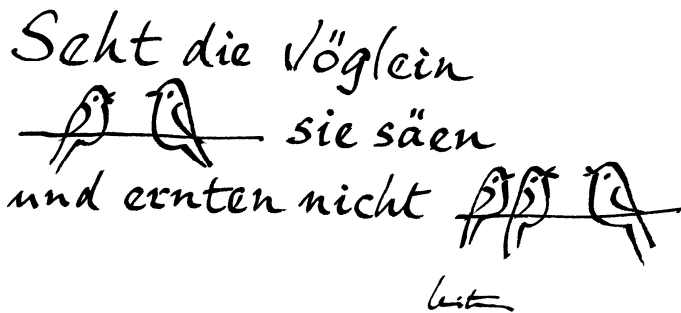 Seht die Vöglein
sie säen
und ernten nicht